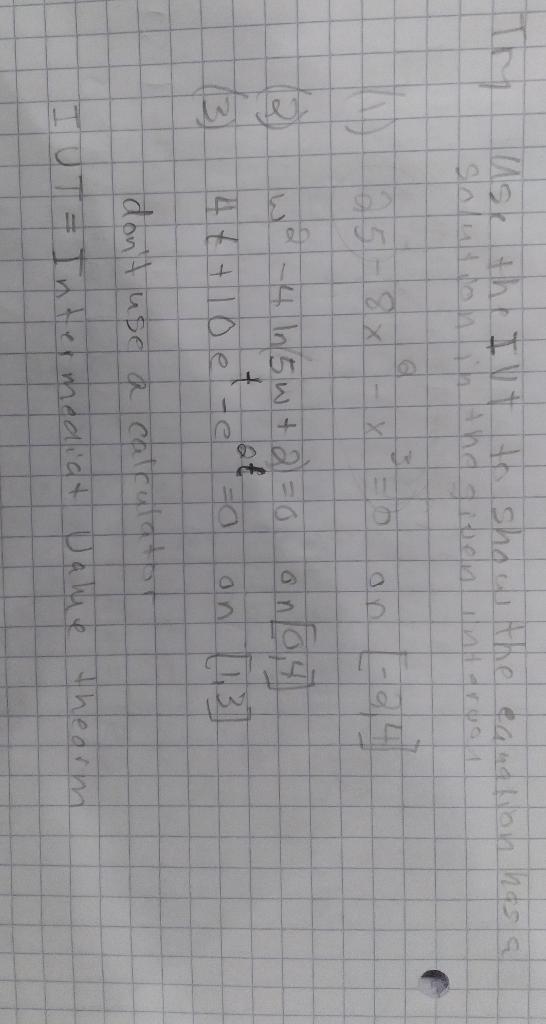 Try Use the IVT to show the equation has a
solution in the given interval
(1) 25 - 8x² - x³ = 0 on [-2,4]
(2) w² - 4 ln(5w + 2) = 0 on [0,4]
(3) 4t + 10e^t - e^2t = 0 on [1,3]
don't use a calculator
IVT = Intermediat Value theorm